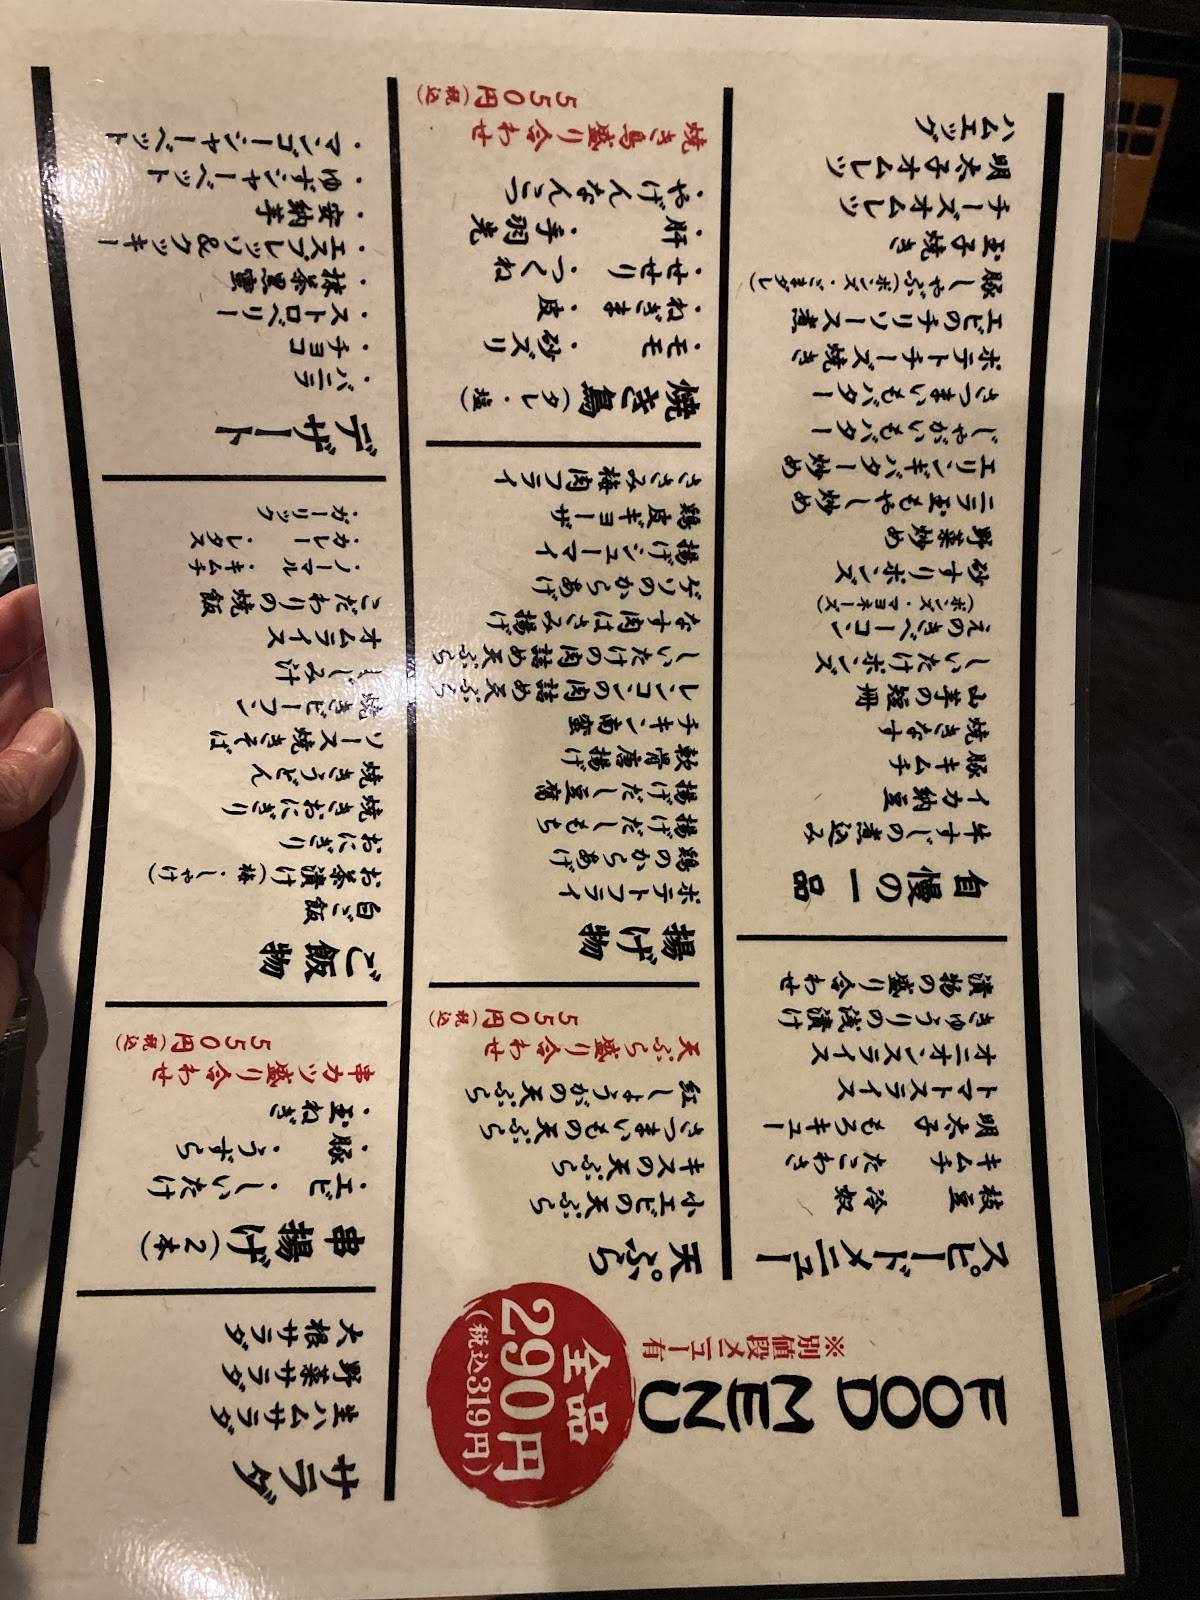 FOOD MENU
※別値段メニュー有
全品
290円
(税込319円)
スピードメニュー
枝豆 冷奴
キムチ たこわさ
明太子 もろキュー
トマトスライス
オニオンスライス
きゅうりの浅漬け
漬物の盛り合わせ
自慢の一品
牛すじの煮込み
イカ納豆
豚キムチ
焼きなす
山芋の短冊
しいたけポンズ
えのきベーコン
(ポンズ・マヨネーズ)
砂ずりポンズ
野菜炒め
ニラ玉もやし炒め
エリンギバター炒め
じゃがいもバター
さつまいもバター
ポテトチーズ焼き
エビのチリソース煮
豚しゃぶ(ポンズ・ごまダレ)
玉子焼き
チーズオムレツ
明太子オムレツ
ハムエッグ
天ぷら
小エビの天ぷら
キスの天ぷら
さつまいもの天ぷら
紅しょうがの天ぷら
天ぷら盛り合わせ
550円(税込)
揚げ物
ポテトフライ
鶏のからあげ
揚げだしもち
揚げだし豆腐
軟骨唐揚げ
チキン南蛮
レンコンの肉詰め天ぷら
しいたけの肉詰め天ぷら
なす肉はさみ揚げ
ゲソのからあげ
揚げシューマイ
鶏皮ギョーザ
ささみ梅肉フライ
焼き鳥(タレ・塩)
・モモ ・砂ズリ
・ねぎま ・皮
・せせり ・つくね
・肝 ・手羽先
・やげんなんこつ
焼き鳥盛り合わせ
550円(税込)
サラダ
生ハムサラダ
野菜サラダ
大根サラダ
串揚げ(2本)
・エビ ・しいたけ
・豚 ・うずら
・玉ねぎ
串カツ盛り合わせ
550円(税込)
ご飯物
白ご飯
お茶漬け(梅・しゃけ)
おにぎり
焼きおにぎり
焼きうどん
ソース焼きそば
焼きビーフン
しじみ汁
オムライス
こだわりの焼飯
・ノーマル ・キムチ
・カレー ・レタス
・ガーリック
デザート
・バニラ
・チョコ
・ストロベリー
・抹茶黒蜜
・エスプレッソ&クッキー
・安納芋
・ゆずシャーベット
・マンゴーシャーベット